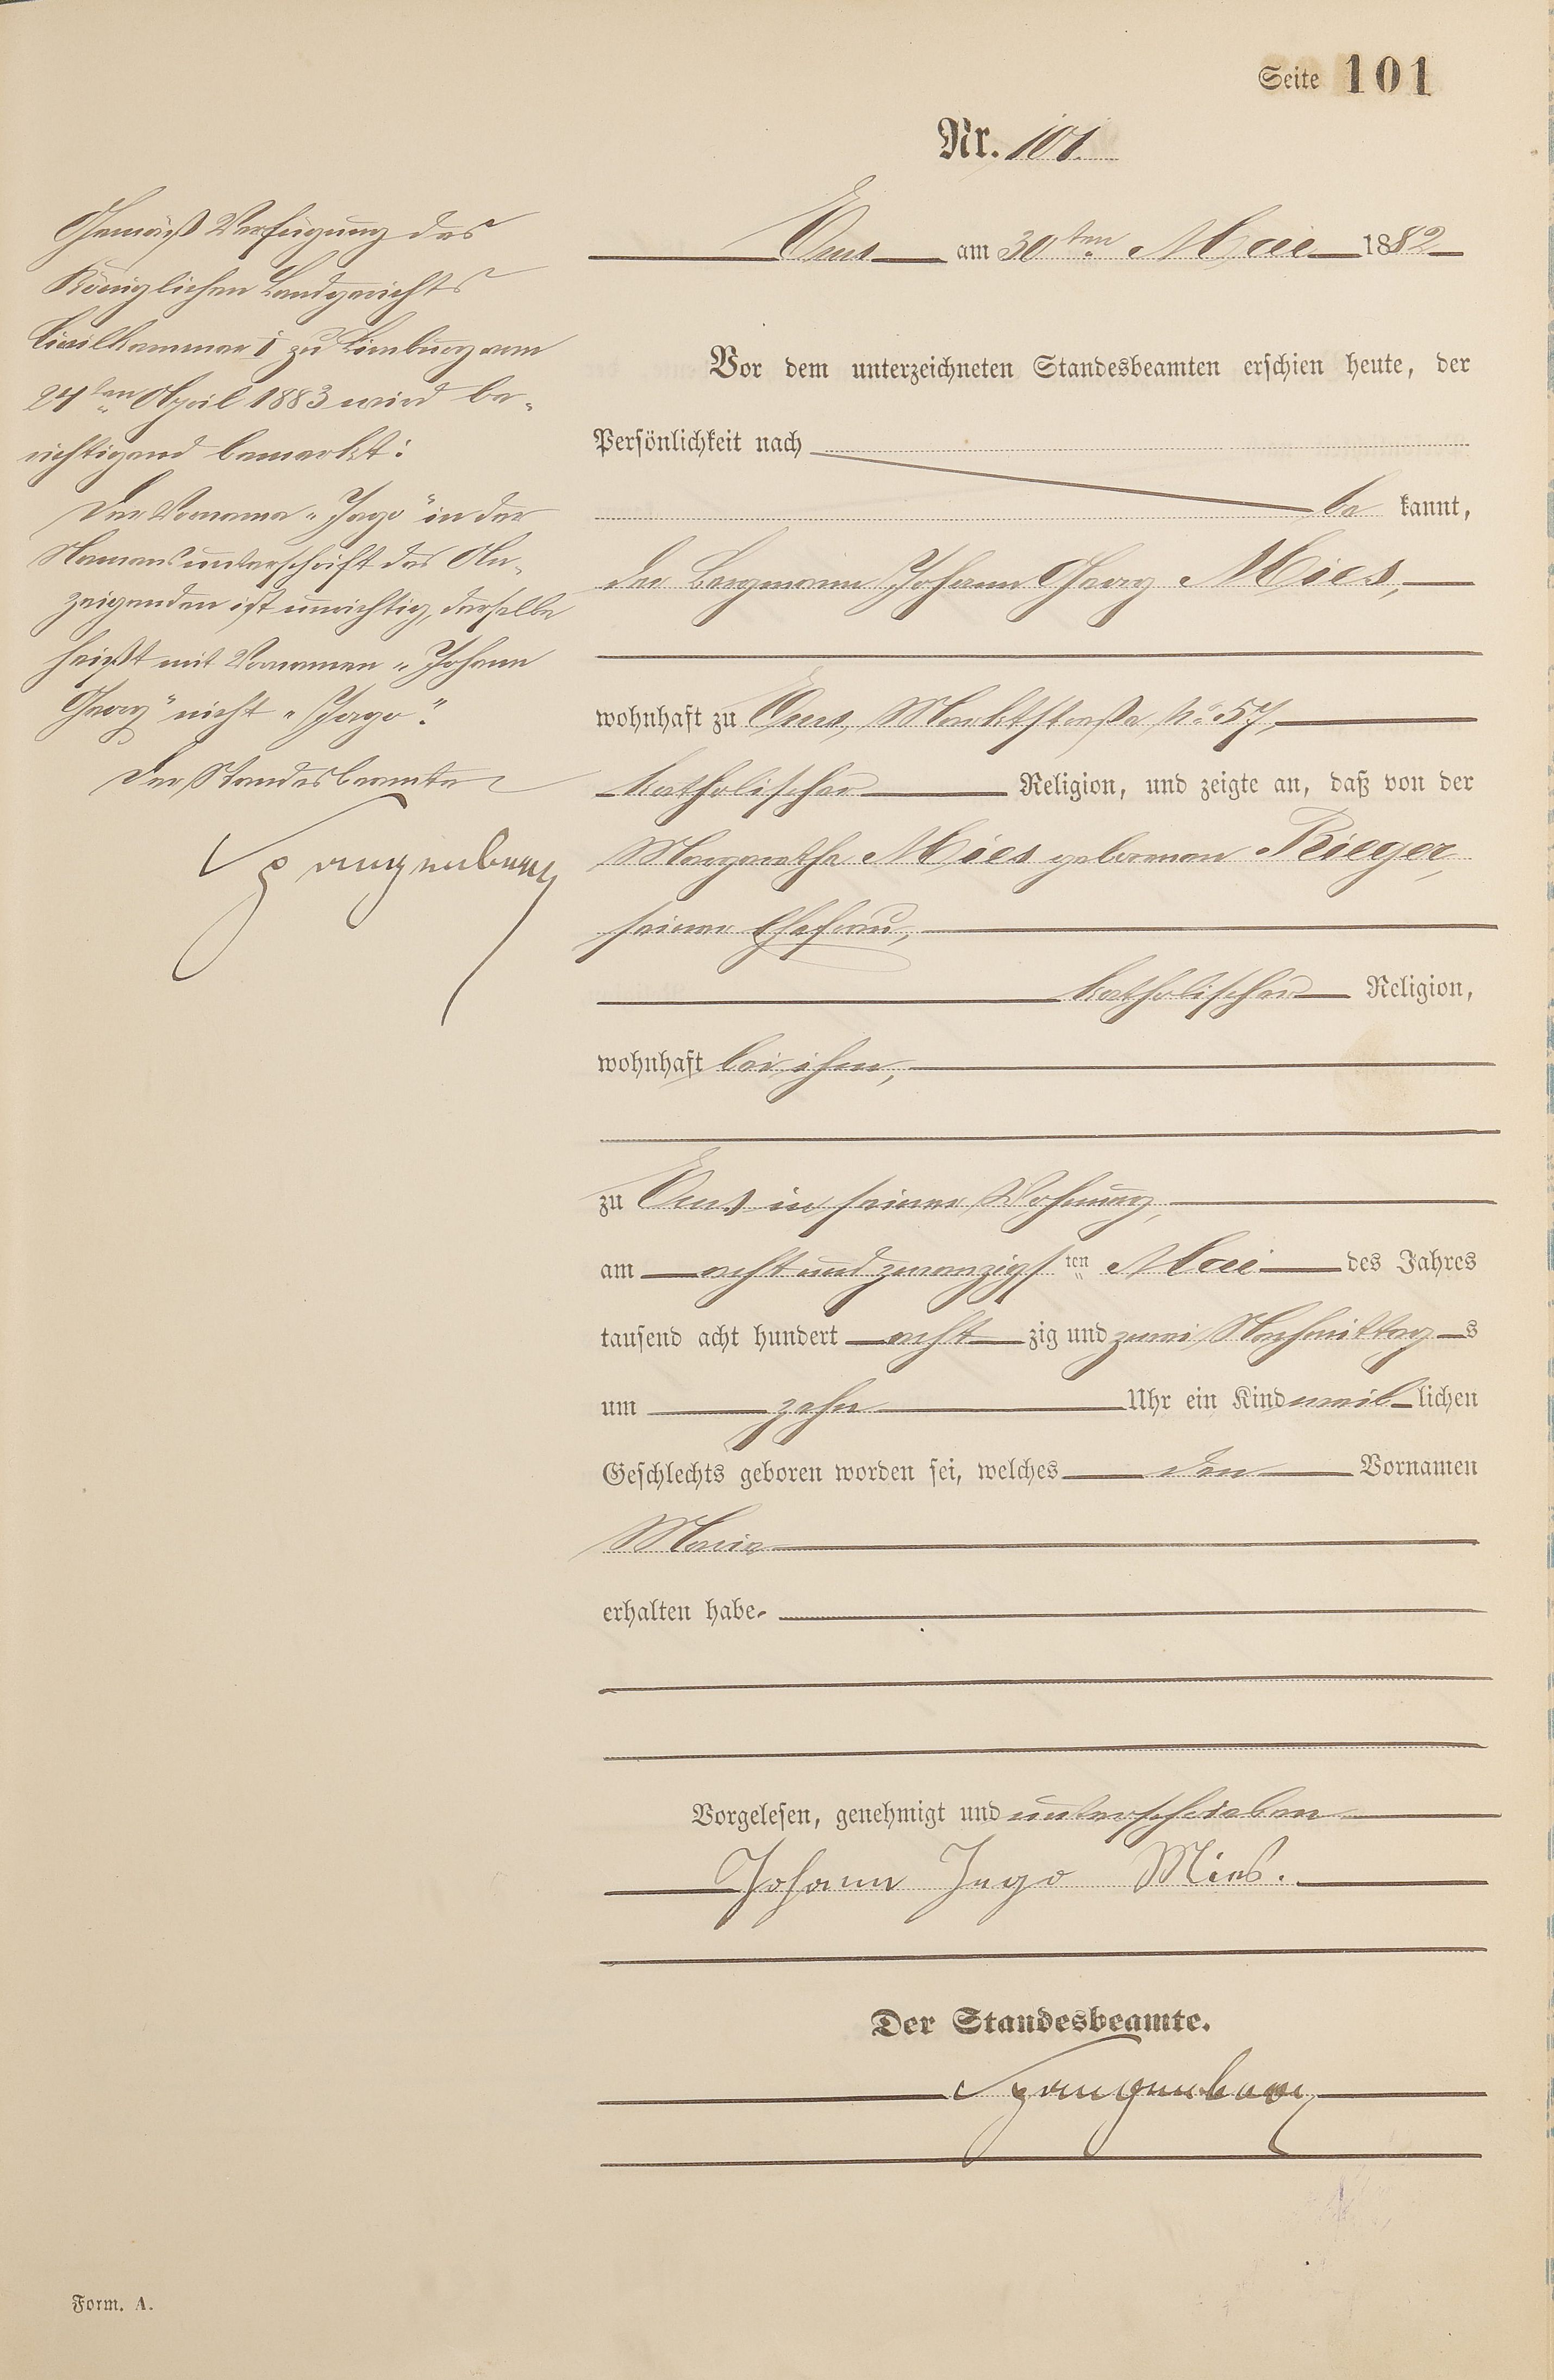 Seite 101
Nr. 101.
Ems am 30ten Mai 1882
Vor dem unterzeichneten Standesbeamten erschien heute, der
Persönlichkeit nach
be kannt,
der Bergmann Johann Georg Mies,
wohnhaft zu Ems, Marktstraße No 57,
katholischer Religion, und zeigte an, daß von der
Margarethe Mies geborenen Rieger,
seiner Ehefrau,
katholischer Religion,
wohnhaft bei ihm,
zu Ems in seiner Wohnung,
am acht und zwanzigsten Mai des Jahres
tausend acht hundert acht zig und zwei Nachmittags
um zehn Uhr ein Kind weiblichen
Geschlechts geboren worden sei, welches den Vornamen
Maria
erhalten habe.
Vorgelesen, genehmigt und unterschrieben
Johann Jago Mies.
Der Standesbeamte.
Spangenberg
Gemäß Verfügung des
Königlichen Landgerichts
Civilkammer I zu Limburg vom
24ten April 1883 wird be-
richtigend bemerkt:
Der Vorname „Jago" in der
Namensunterschrift des An-
zeigenden ist unrichtig, derselbe
heißt mit Vornamen „Johann
Georg" nicht „Jago".
Der Standesbeamte
Spangenberg
Form. A.